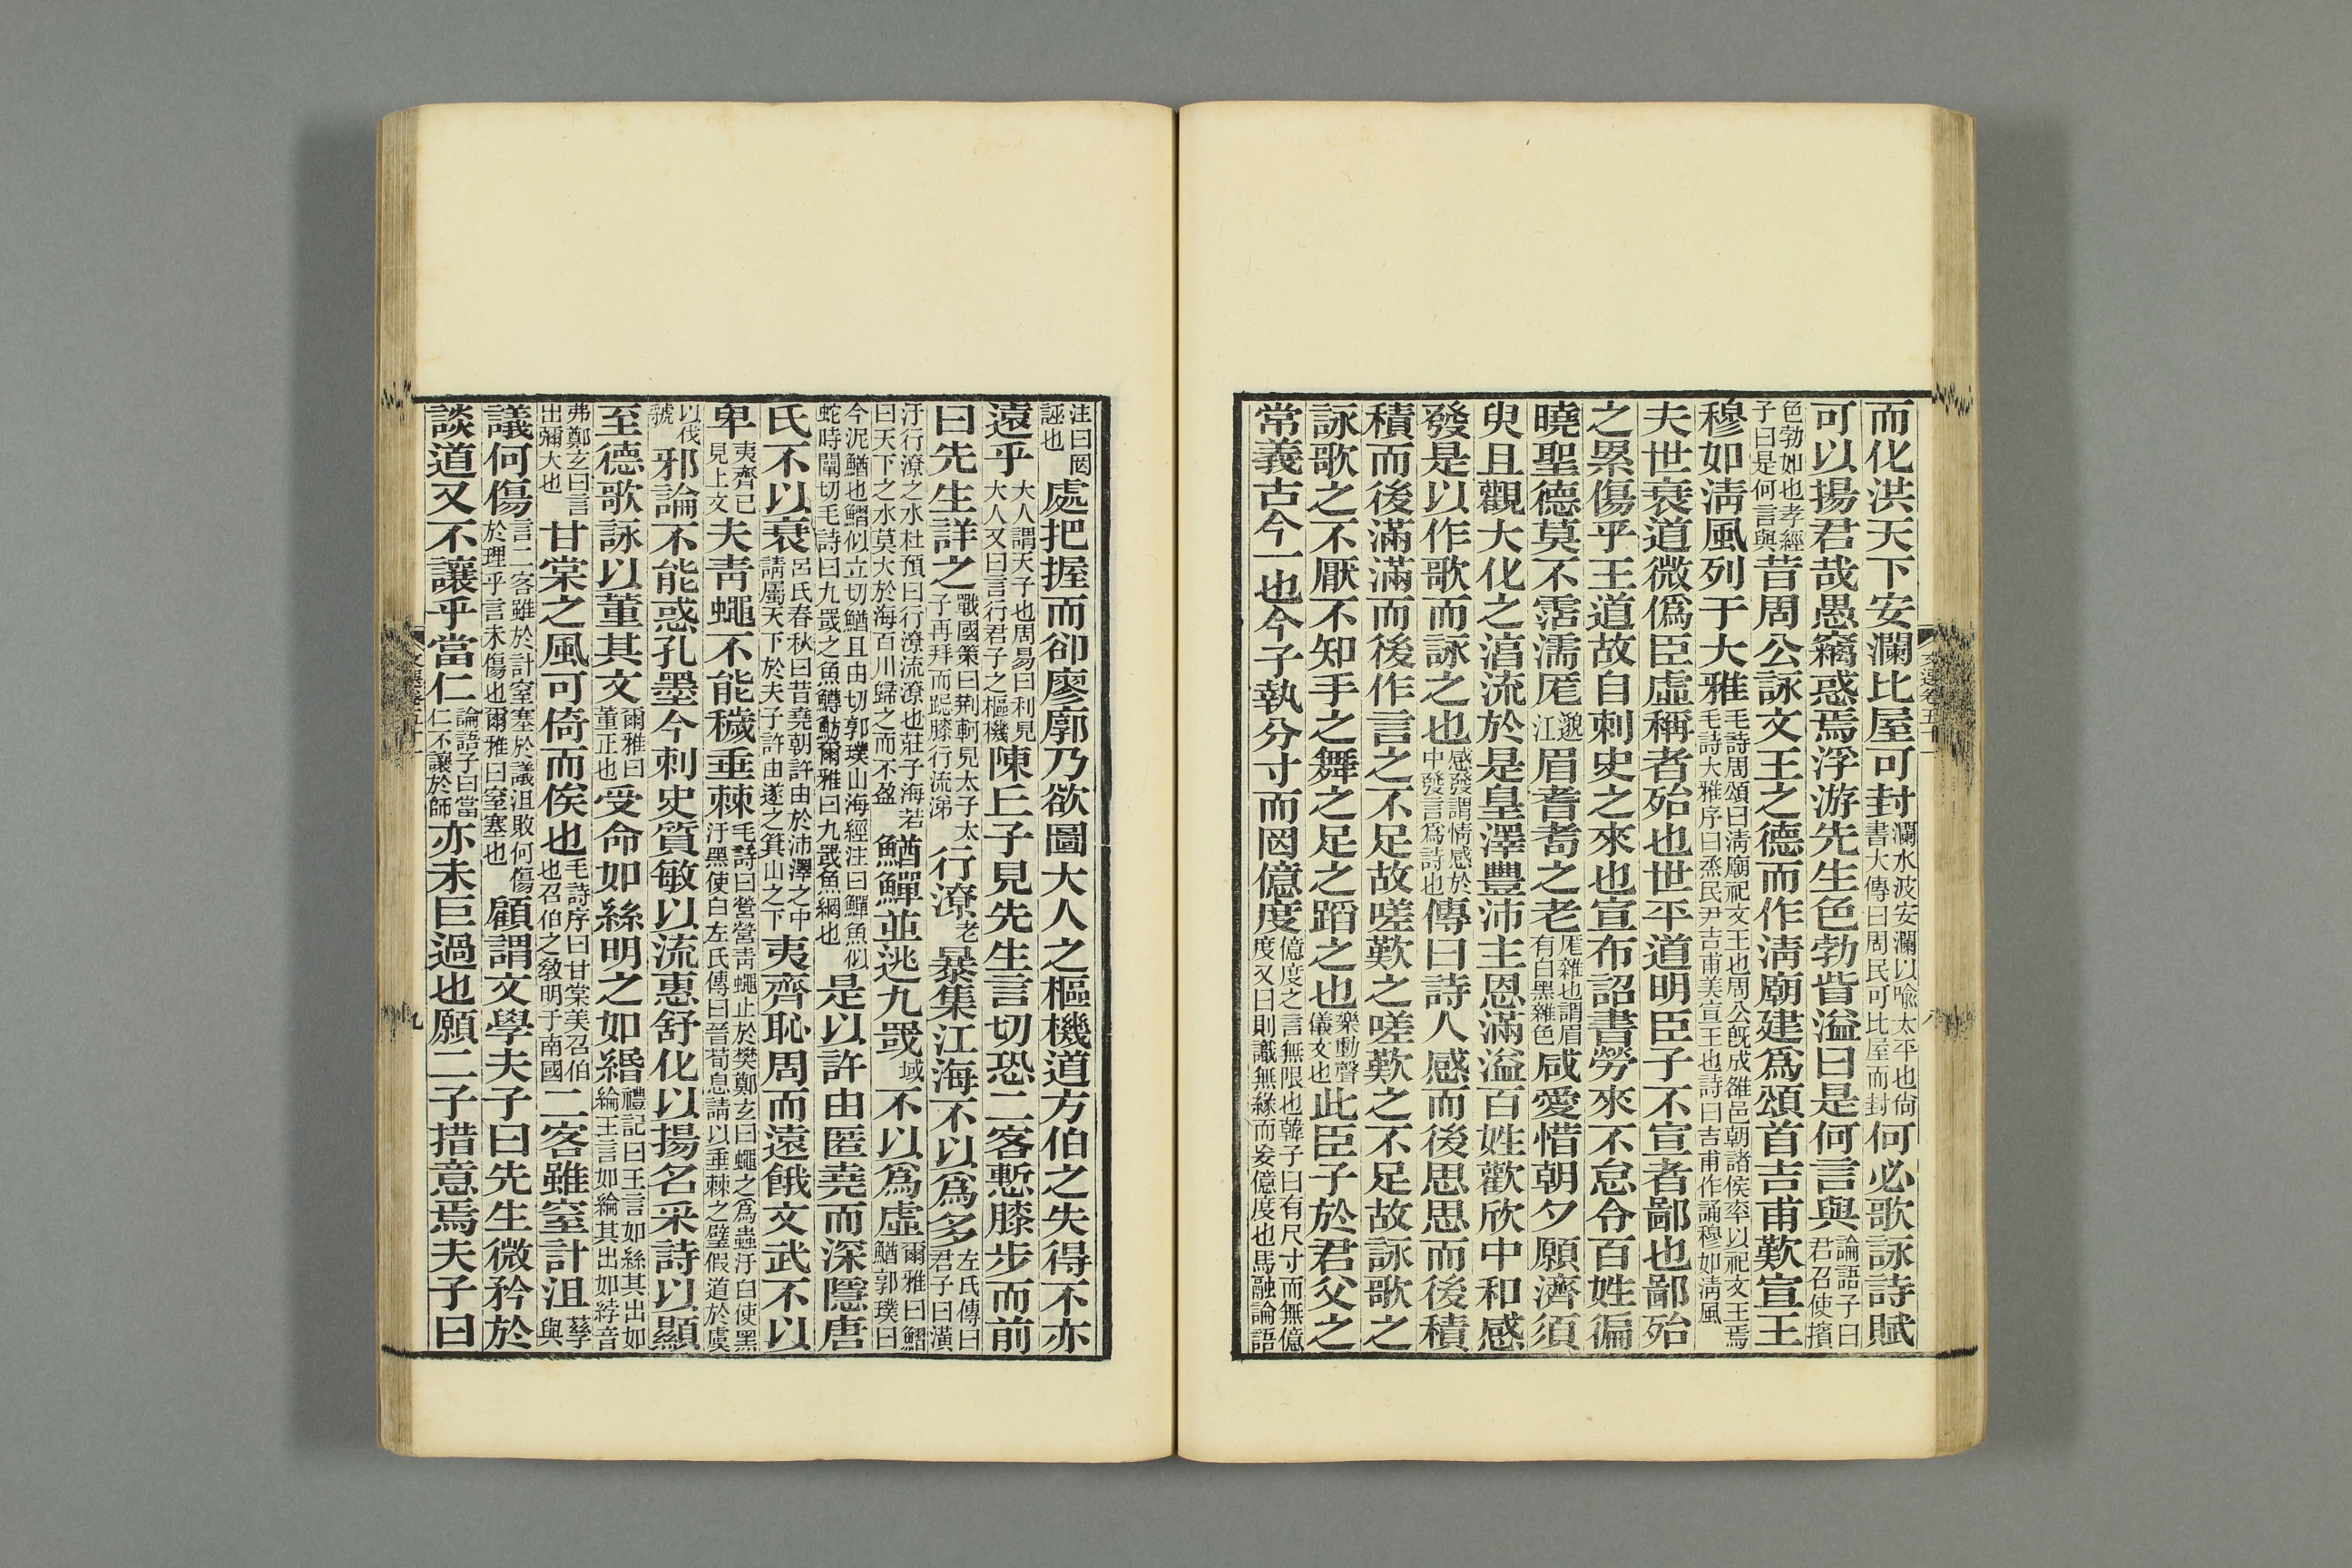 而化洪天下安瀾比屋可封瀾水波安瀾以喻太平也尙書大傳曰周民可比屋而封何必歌詠詩賦
可以揚君哉愚竊惑焉浮游先生色勃眥溢曰是何言與論語子曰君召使擯
色勃如也孝經子曰是何言與昔周公詠文王之德而作淸廟建爲頌首吉甫歎宣王
穆如淸風列于大雅毛詩周頌曰淸廟祀文王也周公旣成雒邑朝諸侯率以祀文王焉毛詩大雅序曰烝民尹吉甫美宣王也詩曰吉甫作誦穆如淸風
夫世衰道微僞臣虛稱者殆也世平道明臣子不宣者鄙也鄙殆
之累傷乎王道故自刺史之來也宣布詔書勞來不怠令百姓徧
曉聖德莫不霑濡厖邈江眉耆耇之老厖雜也謂眉有白黑雜色咸愛惜朝夕願濟須
臾且觀大化之淯流於是皇澤豐沛主恩滿溢百姓歡欣中和感
發是以作歌而詠之也感發謂情感於中發言爲詩也傳曰詩人感而後思思而後積
積而後滿滿而後作言之不足故嗟歎之嗟歎之不足故詠歌之
詠歌之不厭不知手之舞之足之蹈之也樂動聲儀文也此臣子於君父之
常義古今一也今子執分寸而罔億度億度之言無限也韓子曰有尺寸而無億度又曰則識無緣而妄億度也馬融論語
注曰罔誣也處把握而卻廖廓乃欲圖大人之樞機道方伯之失得不亦
遠乎大人謂天子也周易曰利見大人又曰言行君子之樞機陳丘子見先生言切恐二客慙膝步而前
曰先生詳之戰國策曰荆軻見太子太子再拜而跽膝行流涕行潦老暴集江海不以爲多左氏傳曰君子曰潢
汙行潦之水杜預曰行潦流潦也莊子海若曰天下之水莫大於海百川歸之而不盈鰌鱓並逃九罭域不以爲虛爾雅曰鰼鰌郭璞曰
今泥鰌也鰼似立切鰌且由切郭璞山海經注曰鱓魚似蛇時闡切毛詩曰九罭之魚鱒魴爾雅曰九罭魚網也是以許由匿堯而深隱唐
氏不以衰呂氏春秋曰昔堯朝許由於沛澤之中請屬天下於夫子許由遂之箕山之下夷齊恥周而遠餓文武不以
卑夷齊已見上文夫靑蠅不能穢垂棘毛詩曰營營靑蠅止於樊鄭玄曰蠅之爲蟲汙白使黑汙黑使白左氏傳曰晉荀息請以垂棘之璧假道於虞
以伐虢邪論不能惑孔墨今刺史質敏以流惠舒化以揚名采詩以顯
至德歌詠以董其文爾雅曰董正也受命如絲明之如緡禮記曰王言如絲其出如綸王言如綸其出如綍音
弗鄭玄曰言出彌大也甘棠之風可倚而俟也毛詩序曰甘棠美召伯也召伯之敎明于南國二客雖窒計沮蓺與
議何傷言二客雖於計窒塞於議沮敗何傷於理乎言未傷也爾雅曰窒塞也顧謂文學夫子曰先生微矜於
談道又不讓乎當仁論語子曰當仁不讓於師亦未巨過也願二子措意焉夫子曰